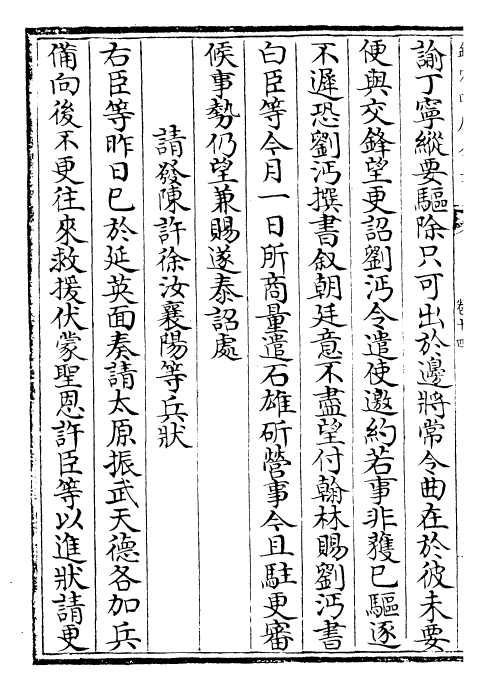 諭丁寧縱要驅除只可出於邊將常令曲在於彼未要
便與交鋒望更詔劉沔令遣使邀約若事非獲已驅逐
不遲恐劉沔撰書叙朝廷意不盡望付翰林賜劉沔書
白臣等今月一日所商量遣石雄斫營事今且駐更審
候事勢仍望兼賜遂泰詔處
請發陳許徐汝襄陽等兵狀
右臣等昨日已於延英面奏請太原振武天德各加兵
備向後不更往來救援伏蒙聖恩許臣等以進狀請更